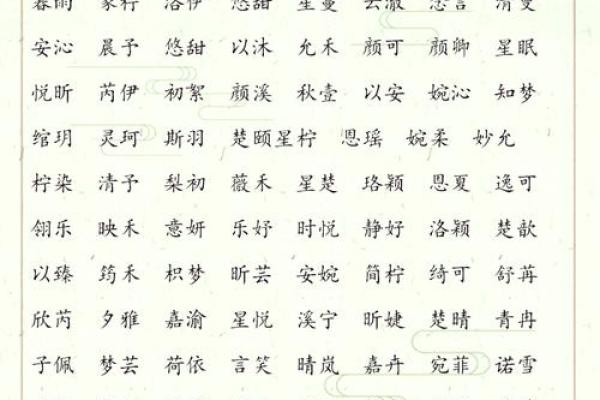 春雨 家柠 洛伊 悠甜 星蔓 云澈 忘言 清曼
安沁 晨予 悠甜 以沐 允禾 颜可 颜卿 星眠
悦昕 芮伊 初絮 颜溪 秋壹 以安 婉沁 知梦
绾玥 灵珂 斯羽 楚颐星柠 恩瑶 婉柔 妙允
柠染 清予 梨初 薇禾 星楚 珞颖 恩夏 逸可
翎乐 映禾 意妍 乐妤 时悦 静好 洛颖 楚歆
以臻 筠禾 枳梦 昕芸 安婉 简柠 绮可 舒苒
欣芮 夕雅 嘉渝 星悦 溪宁 昕婕 楚晴 青冉
子佩 梦芸 荷依 言笑 晴岚 嘉卉 宛菲 诺雪